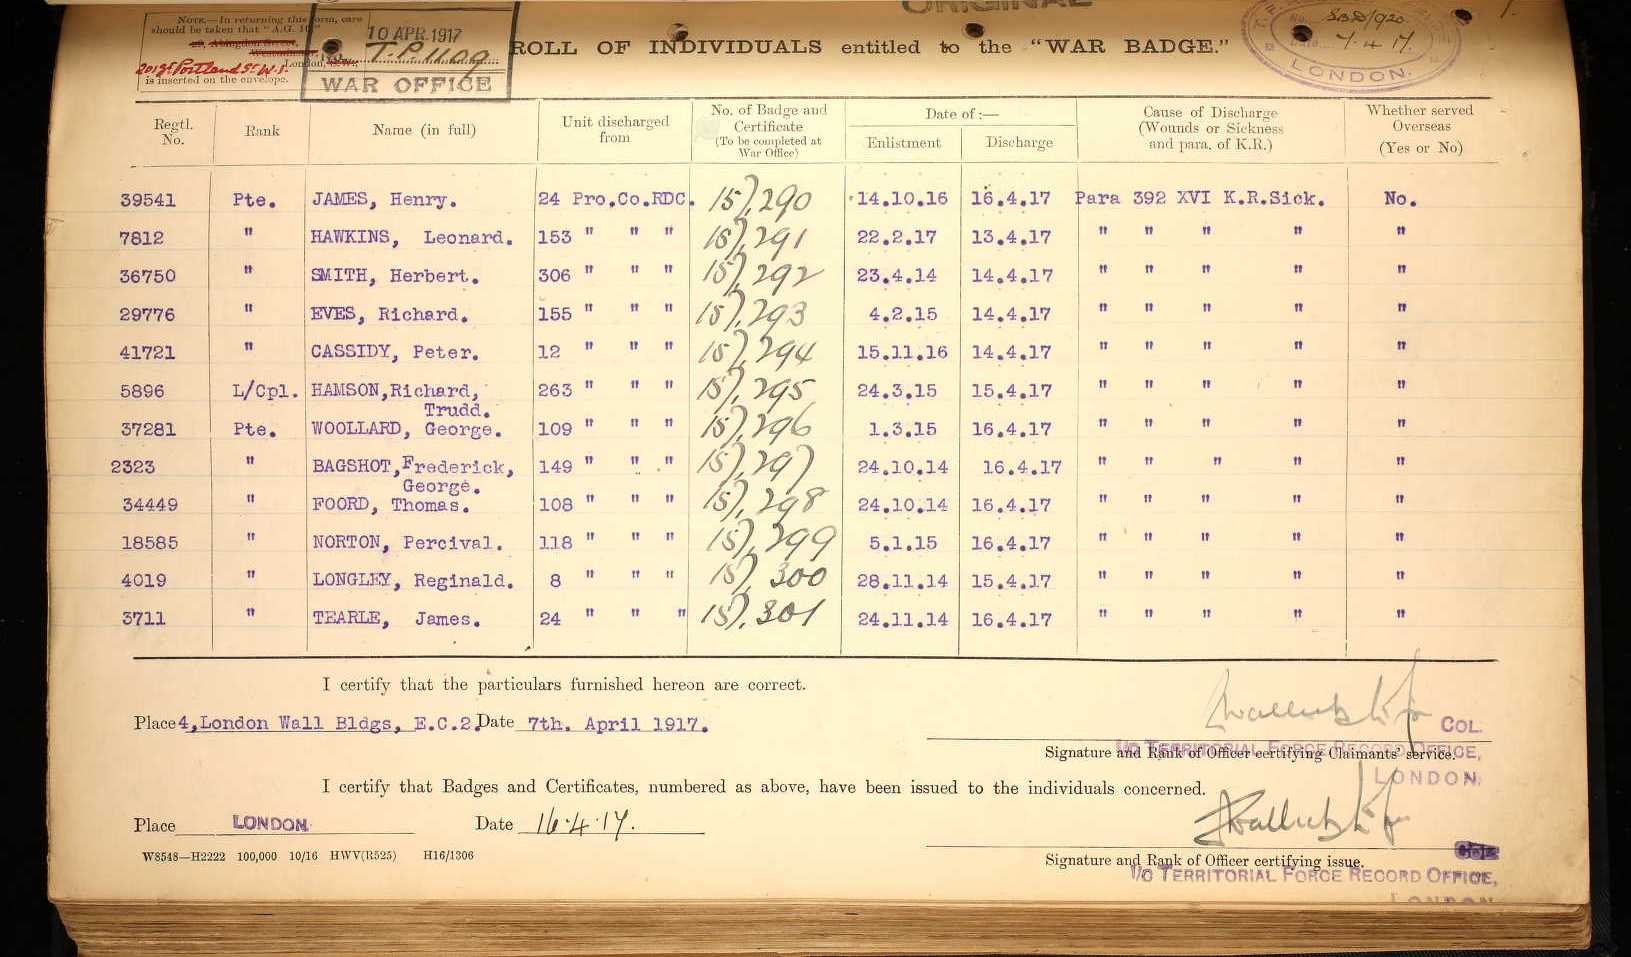 ORIGINAL
NOTE.—In returning this form, care
should be taken that "A.G. 10,"
London,
is inserted on the envelope.
10 APR. 1917
WAR OFFICE
ROLL OF INDIVIDUALS entitled to the "WAR BADGE."
No. SBD/920
Date 7.4.17.
LONDON.
Regtl. No. Rank Name (in full) Unit discharged from No. of Badge and Certificate (To be completed at War Office) Date of :— Enlistment Discharge Cause of Discharge (Wounds or Sickness and para. of K.R.) Whether served Overseas (Yes or No)
39541 Pte. JAMES, Henry. 24 Pro.Co.RDC. 157,290 14.10.16 16.4.17 Para 392 XVI K.R.Sick. No.
7812 " HAWKINS, Leonard. 153 " " " 157,291 22.2.17 13.4.17 " " " " "
36750 " SMITH, Herbert. 306 " " " 157,292 23.4.14 14.4.17 " " " " "
29776 " EVES, Richard. 155 " " " 157,293 4.2.15 14.4.17 " " " " "
41721 " CASSIDY, Peter. 12 " " " 157,294 15.11.16 14.4.17 " " " " "
5896 L/Cpl. HAMSON,Richard, 263 " " " 157,295 24.3.15 15.4.17 " " " " "
Trudd.
37281 Pte. WOOLLARD, George. 109 " " " 157,296 1.3.15 16.4.17 " " " " "
2323 " BAGSHOT,Frederick, 149 " " " 157,297 24.10.14 16.4.17 " " " " "
George.
34449 " FOORD, Thomas. 108 " " " 157,298 24.10.14 16.4.17 " " " " "
18585 " NORTON, Percival. 118 " " " 157,299 5.1.15 16.4.17 " " " " "
4019 " LONGLEY, Reginald. 8 " " " 157,300 28.11.14 15.4.17 " " " " "
3711 " TEARLE, James. 24 " " " 157,301 24.11.14 16.4.17 " " " " "
I certify that the particulars furnished hereon are correct.
Place 4,London Wall Bldgs, E.C.2. Date 7th. April 1917.
COL.
I/C TERRITORIAL FORCE RECORD OFFICE,
Signature and Rank of Officer certifying Claimants' service.
LONDON.
I certify that Badges and Certificates, numbered as above, have been issued to the individuals concerned.
Place LONDON Date 16.4.17.
W8548—H2222 100,000 10/16 HWV(R525) H16/1306
Signature and Rank of Officer certifying issue.
I/C TERRITORIAL FORCE RECORD OFFICE,
LONDON